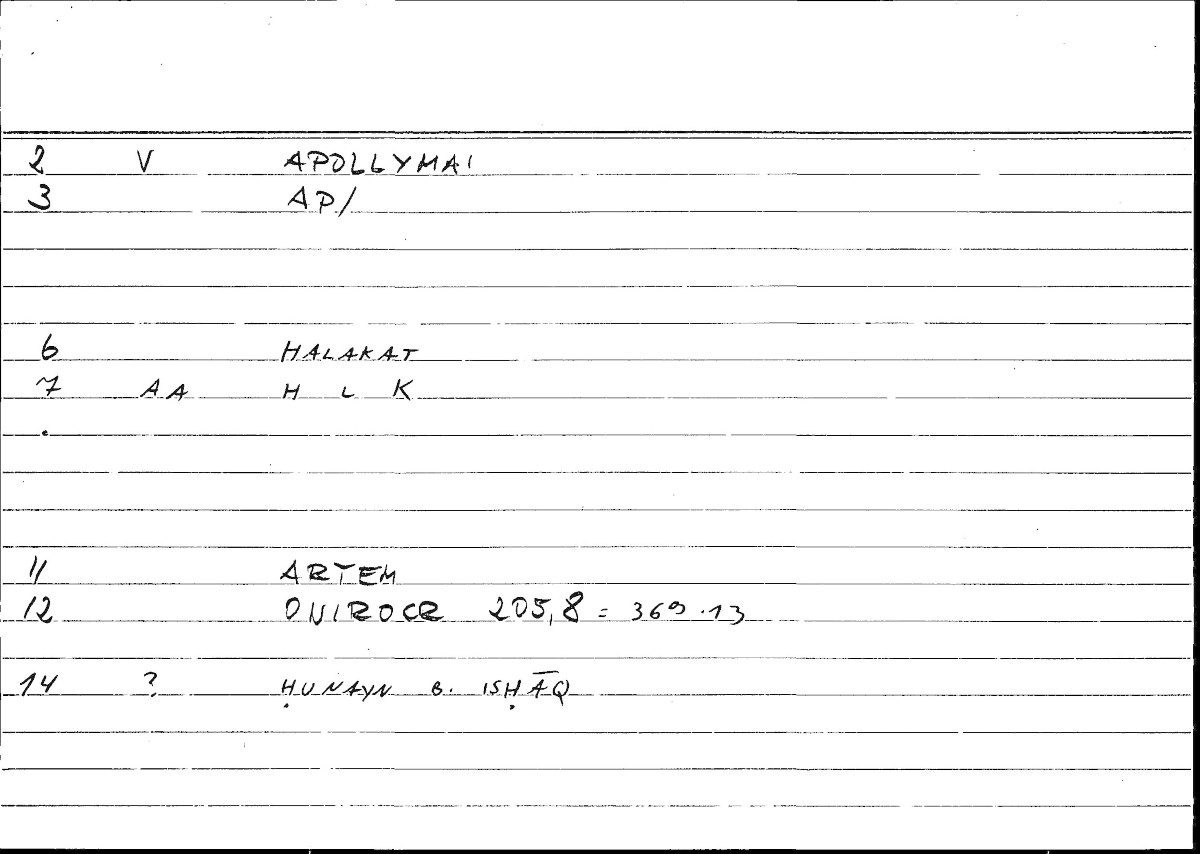 2 V APOLLYMAI
3 AP/
6 HALAKAT
7 AA H L K
.
11 ARTEM
12 ONIROCR 205,8 = 369.13
14 ? ḤUNAYN B. ISḤĀQ